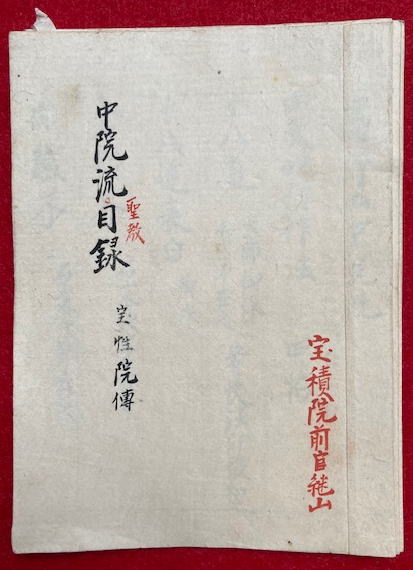 宝積院前官継山
聖教
中院流目録
宝性院傳